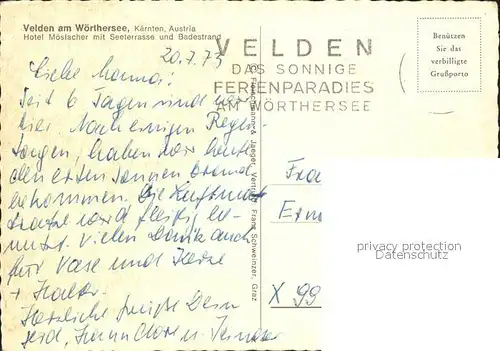 Velden am Wörthersee, Kärnten, Austria
Hotel Möslacher mit Seeterrasse und Badestrand
20.7.73
VELDEN
DAS SONNIGE
FERIENPARADIES
AM WÖRTHERSEE
Benützen
Sie das
verbilligte
Grußporto
Liebe
Seit 6 Tagen sind wir
hier. Nach einigen Regen-
tagen, haben wir heute
den ersten Sonnenbrand
bekommen. Die Luftmat-
ratze wird fleißig be-
nutzt. Vielen Dank auch
für Vase und Kerze
+ Halter.
Herzliche Grüße Dein
Gerd, Hannelore u.
& Jaeger, Vertrieb: Franz Schweinzer, Graz
Frau
X 99
privacy protection
Datenschutz